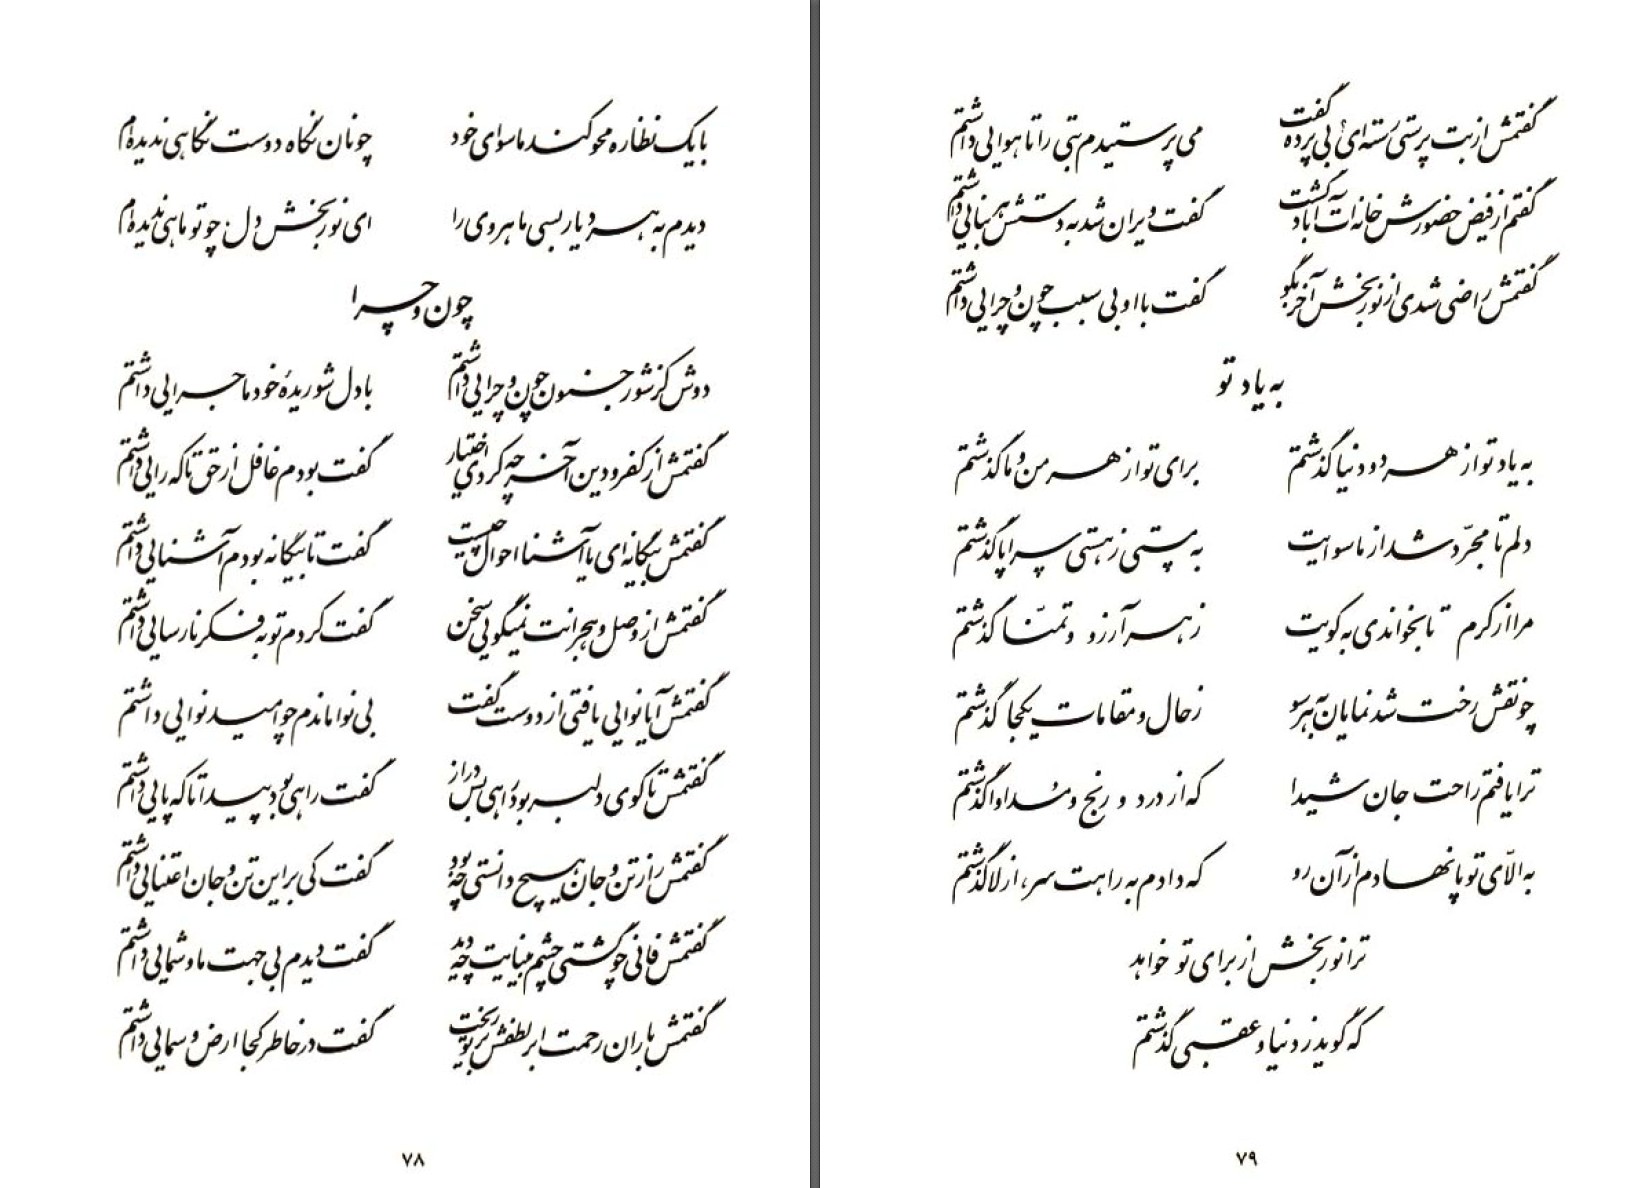 با یک نظاره محو کند ماسوای خود چونان نگاه دوست نگاهی ندیده‌ام
دیدم به هر دیار بسی ماهروی را ای نوربخش دل چو تو ماهی ندیده‌ام
چون و چرا
دوش کز شور جنون چون و چرایی داشتم با دل شوریدهٔ خود ماجرایی داشتم
گفتمش از کفر و دین آخر چه کردی اختیار گفت بودم غافل از حق تا که رایی داشتم
گفتمش بیگانه‌ای یا آشنا احوال چیست گفت تا بیگانه بودم آشنایی داشتم
گفتمش از وصل و هجرانت نمیگویی سخن گفت کردم توبه فکر نارسایی داشتم
گفتمش آیا نوایی یافتی از دوست گفت بی نوا ماندم چو امید نوایی داشتم
گفتمش تا کوی دلبر بود راهی بس دراز گفت راهی بود پیدا تا که پایی داشتم
گفتمش راز تن و جان هیچ دانستی چه بود گفت کی بر این تن و جان اعتنایی داشتم
گفتمش فانی چو گشتی چشم بینایت چه دید گفت دیدم بی جهت ما و شمایی داشتم
گفتمش باران رحمت ابر لطفش بر تو ریخت گفت در خاطر کجا ارض و سمایی داشتم
۷۸
گفتمش از بت پرستی رسته‌ای بی پرده گفت می پرستیدم بتی را تا هوایی داشتم
گفتم از فیض حضورش خانه‌ات آباد گشت گفت ویران شد به دستش هر بنایی داشتم
گفتمش راضی شدی از نوربخش آخر بگو گفت با او بی سبب چون و چرایی داشتم
به یاد تو
به یاد تو از هر دو دنیا گذشتم برای تو از هر من و ما گذشتم
دلم تا مجرّد شد از ماسوایت به پستی ز هستی سراپا گذشتم
مرا از کرم تا بخواندی به کویت ز هر آرزو و تمنّا گذشتم
چو نقش رخت شد نمایان به هر سو ز حال و مقامات یکجا گذشتم
ترا یافتم راحت جان شیدا که از درد و رنج و مداوا گذشتم
به الّای تو پا نهادم از آن رو که دادم به راهت سر، از لا گذشتم
ترا نوربخش از برای تو خواهد
که گوید ز دنیا و عقبی گذشتم
۷۹